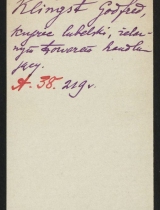 Klingst Godfred,
kupiec lubelski, żela-
nych towarów handlu-
jący.
A. 38. 219v.